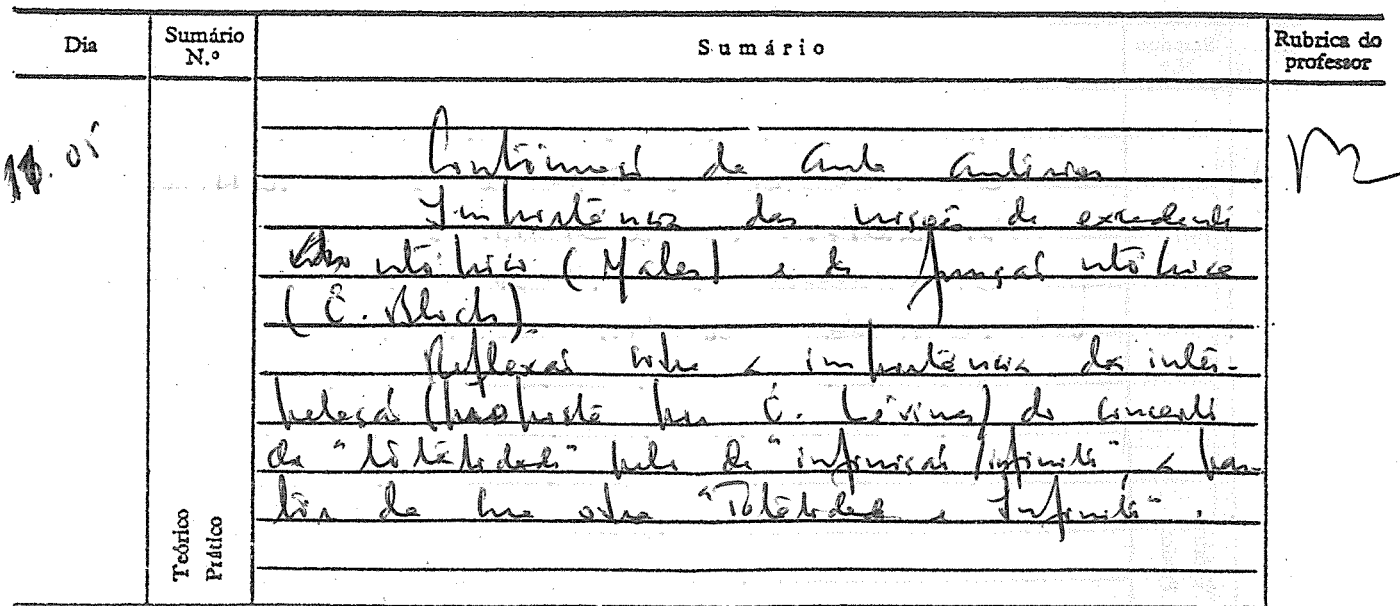 Dia
Sumário N.º
Sumário
Rubrica do professor
18.05
Continuação da aula anterior
Importância das noções de excedente
utópico (Maler) e de função utópica
(E. Bloch)
Reflexão sobre a importância da inter-
pelação (proposta por E. Lévinas) do conceito
de "totalidade" pelo de "infinição/infinito" a par-
tir da sua obra "Totalidade e Infinito".
Teórico
Prático